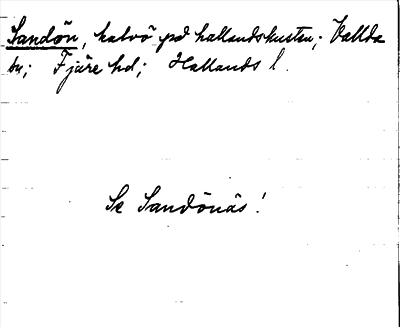 Sandön, halvö på hallandskusten; Vallda
sn; Fjäre hd; Hallands l.
Se Sandönäs!